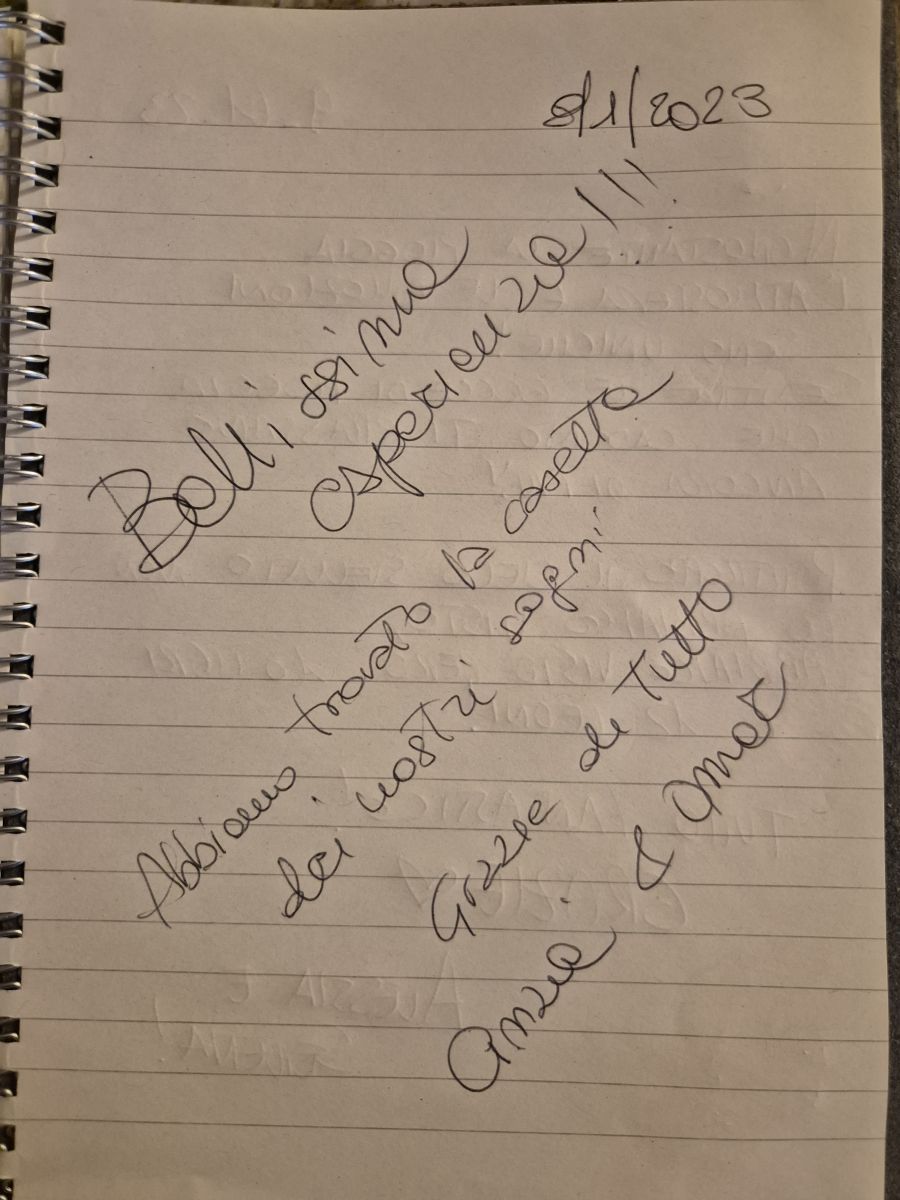 8/1/2023
Bellissima
esperienza!!!
Abbiamo trovato la casetta
dei nostri sogni
Grazie di Tutto
&